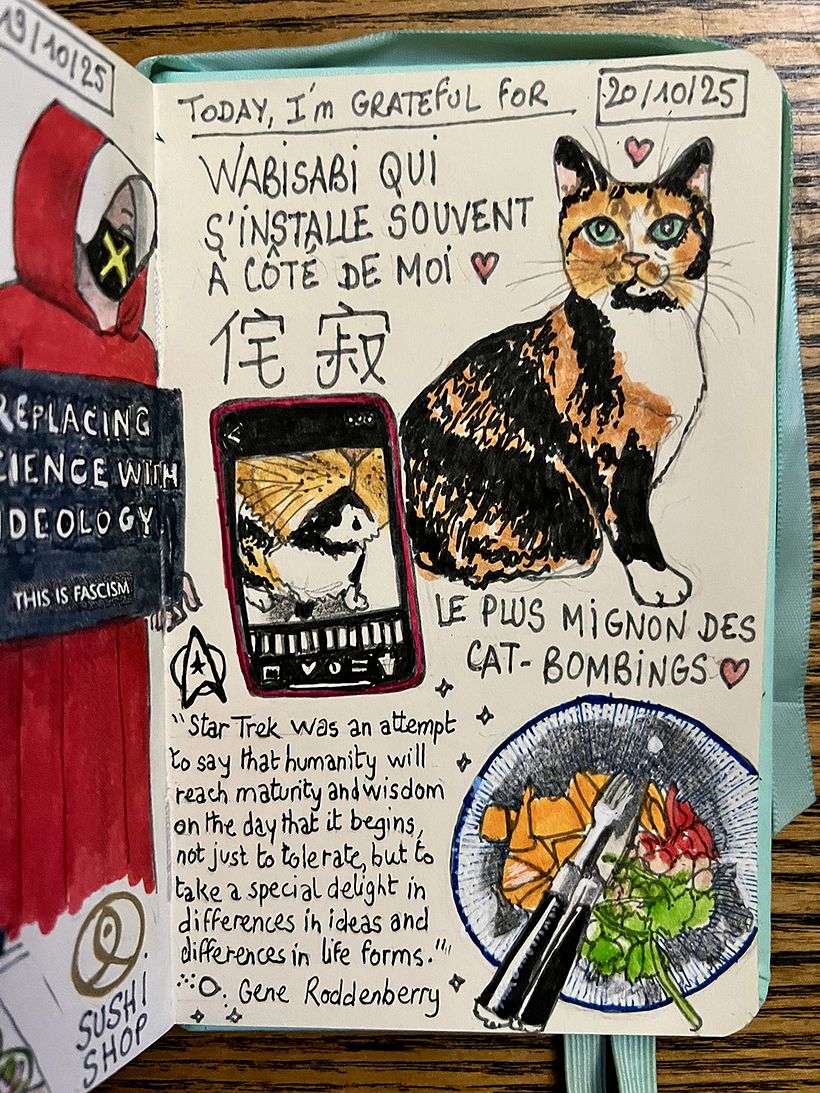 19/10/25
REPLACING
CIENCE WITH
IDEOLOGY
THIS IS FASCISM
SUSHI
SHOP
TODAY, I'm GRATEFUL FOR
20/10/25
WABISABI QUI
S'INSTALLE SOUVENT
À CÔTÉ DE MOI
侘寂
LE PLUS MIGNON DES
CAT-BOMBINGS
"Star Trek was an attempt
to say that humanity will
reach maturity and wisdom
on the day that it begins,
not just to tolerate, but to
take a special delight in
differences in ideas and
differences in life forms."
Gene Roddenberry